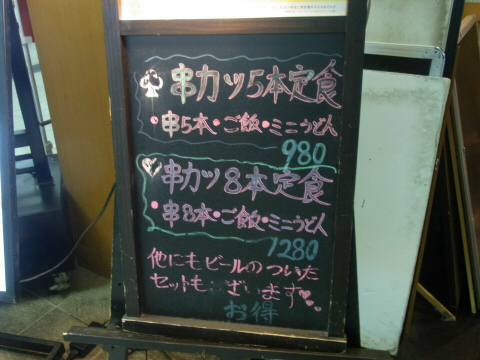 串カツ5本定食
・串5本・ご飯・ミニうどん
980
串カツ8本定食
・串8本・ご飯・ミニうどん
1280
他にもビールのついた
セットもございます
お得